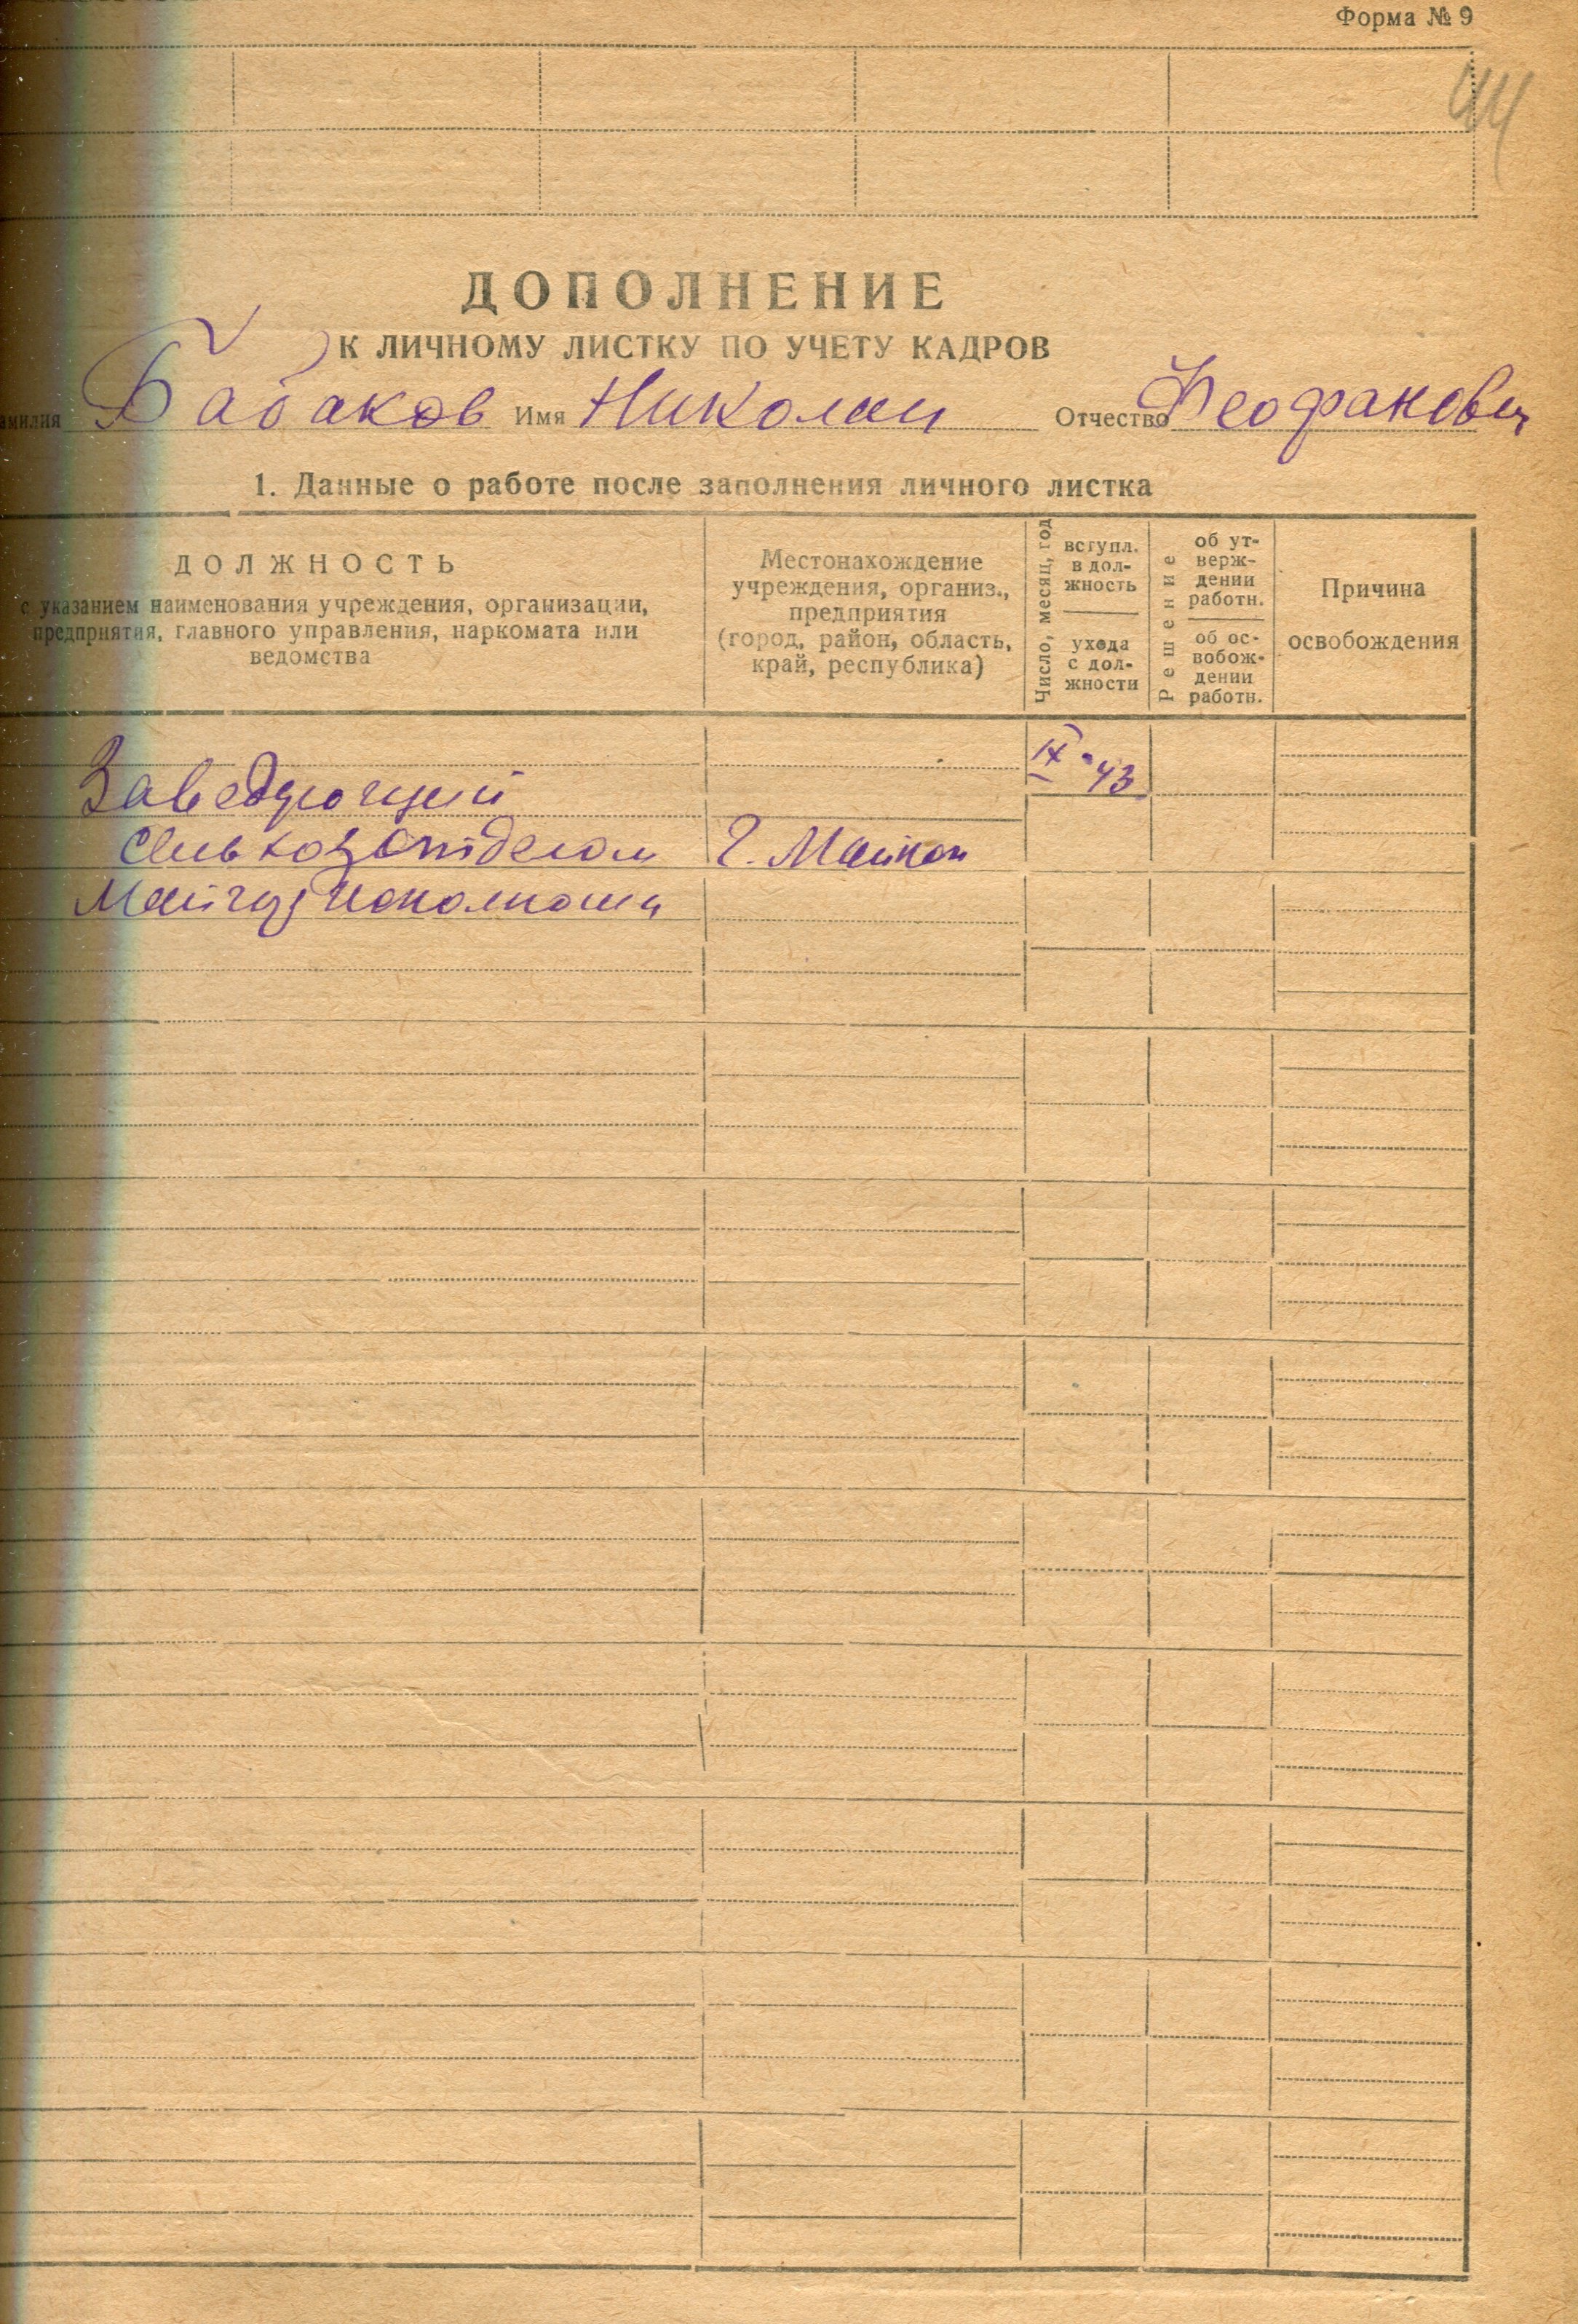 Форма № 9
44
ДОПОЛНЕНИЕ
К ЛИЧНОМУ ЛИСТКУ ПО УЧЕТУ КАДРОВ
амилия Бабаков Имя Николай Отчество Феофанович
1. Данные о работе после заполнения личного листка
ДОЛЖНОСТЬ
с указанием наименования учреждения, организации,
предприятия, главного управления, наркомата или
ведомства
Местонахождение
учреждения, организ.,
предприятия
(город, район, область,
край, республика)
Число, месяц, год
вступл.
в дол-
жность
ухода
с дол-
жности
Решение
об ут-
верж-
дении
работн.
об ос-
вобож-
дении
работн.
Причина
освобождения
IX-43
Заведующий
Сельхозотделом г. Майкоп